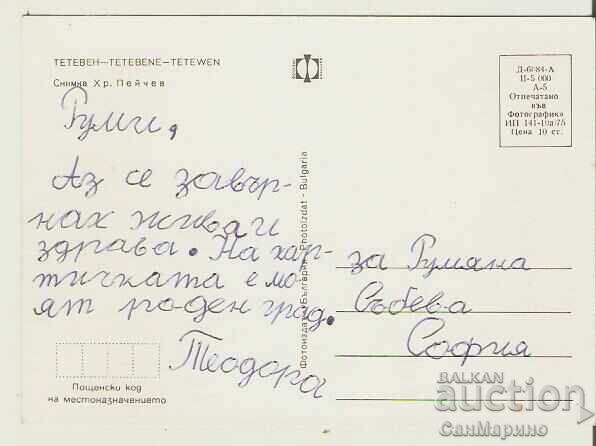 ТЕТЕВЕН—TETEBENE—TETEWEN
Снимка Хр. Пейчев
Д-6684-А
II-5 000
А-5
Отпечатано
във
Фотографика
ИП 141-10а/75
Цена 10 ст.
Руми,
Аз се завър-
нах жива и
здрава. На хар-
тичката е мо-
ят роден град.
Теодора
Фотоиздат · България · Photoizdat - Bulgaria
за Румяна
Събева
София
Пощенски код
на местоназначението
BALKAN
auction
СанМарино